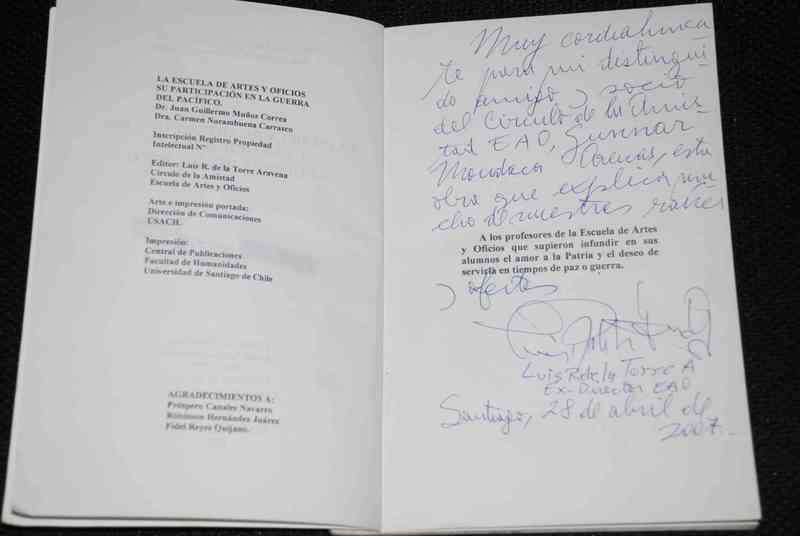 LA ESCUELA DE ARTES Y OFICIOS
SU PARTICIPACIÓN EN LA GUERRA
DEL PACÍFICO.
Dr. Juan Guillermo Muñoz Correa
Dra. Carmen Norambuena Carrasco
Inscripción Registro Propiedad
Intelectual Nº
Editor: Luis R. de la Torre Aravena
Círculo de la Amistad
Escuela de Artes y Oficios
Arte e impresión portada:
Dirección de Comunicaciones
USACH.
Impresión:
Central de Publicaciones
Facultad de Humanidades
Universidad de Santiago de Chile
AGRADECIMIENTOS A:
Próspero Canales Navarro
Robinson Hernández Juárez
Fidel Reyes Quijano.
Muy cordialmen
te para mi distingui
do amigo y socio
del Círculo de la Amis
tad EAO, Gunnar
Mondaca Arenas, esta
obra que explica mu
cho de nuestras raíces
A los profesores de la Escuela de Artes
y Oficios que supieron infundir en sus
alumnos el amor a la Patria y el deseo de
servirla en tiempos de paz o guerra.
y afectos
Luis R de la Torre A
Ex-Director EAO
Santiago, 28 de abril de
2007.